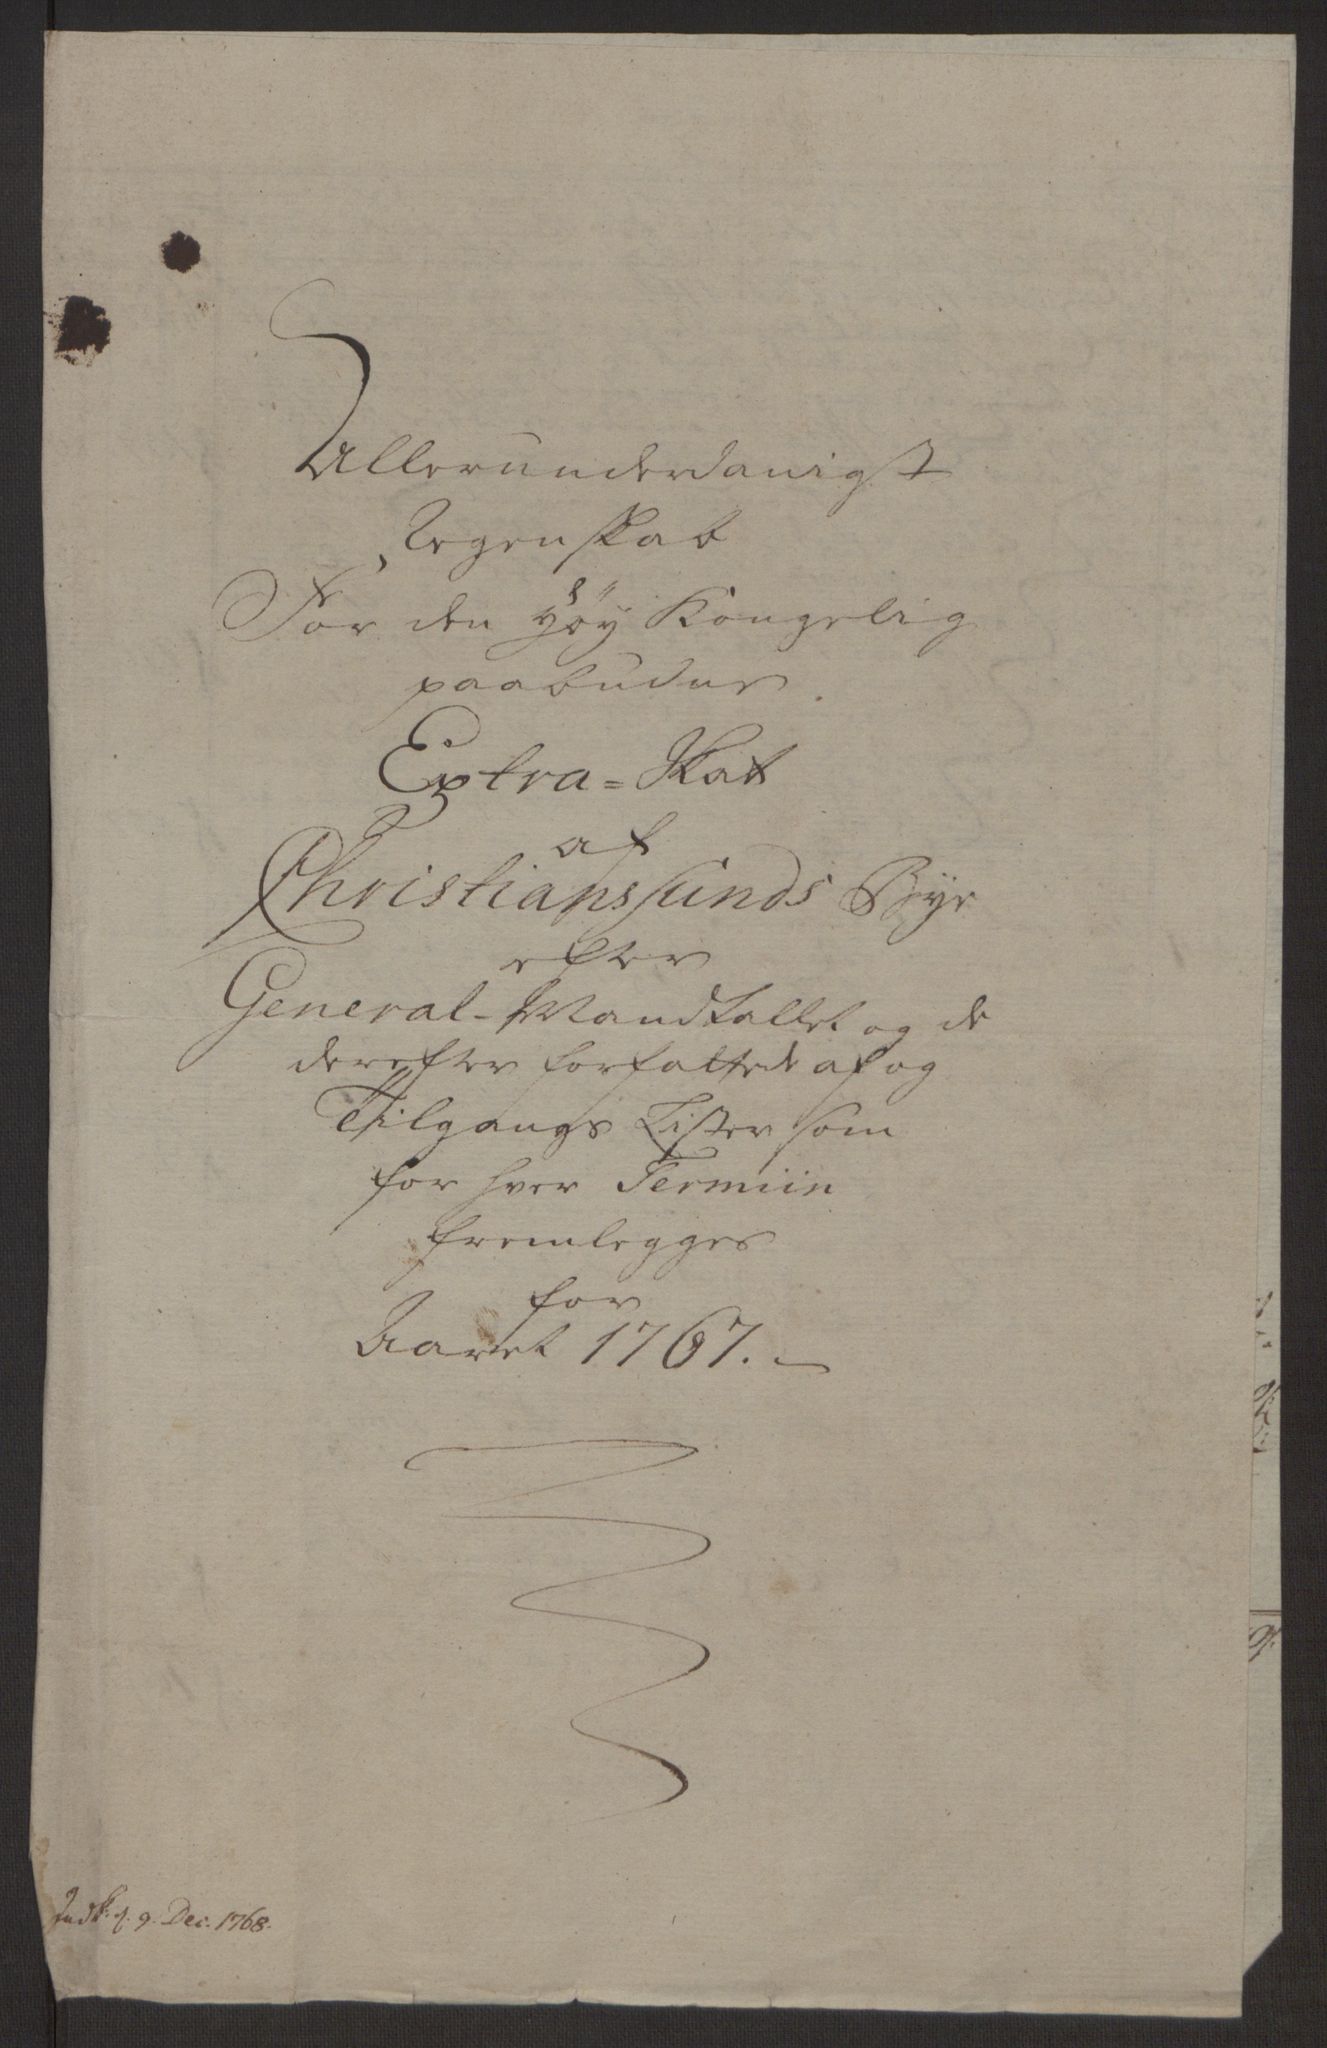 Allerunderdanigst
Regenskab
For den Høy Kongelig
paabudne
Extra=Skat
af
Christianssunds Bye
efter
General-Mandtallet og de
derefter forfattede af og
Tilgangs Lister som
for hver Termiin
fremlegges
for
Aaret 1767.
Indk: d. 9. Dec. 1768.